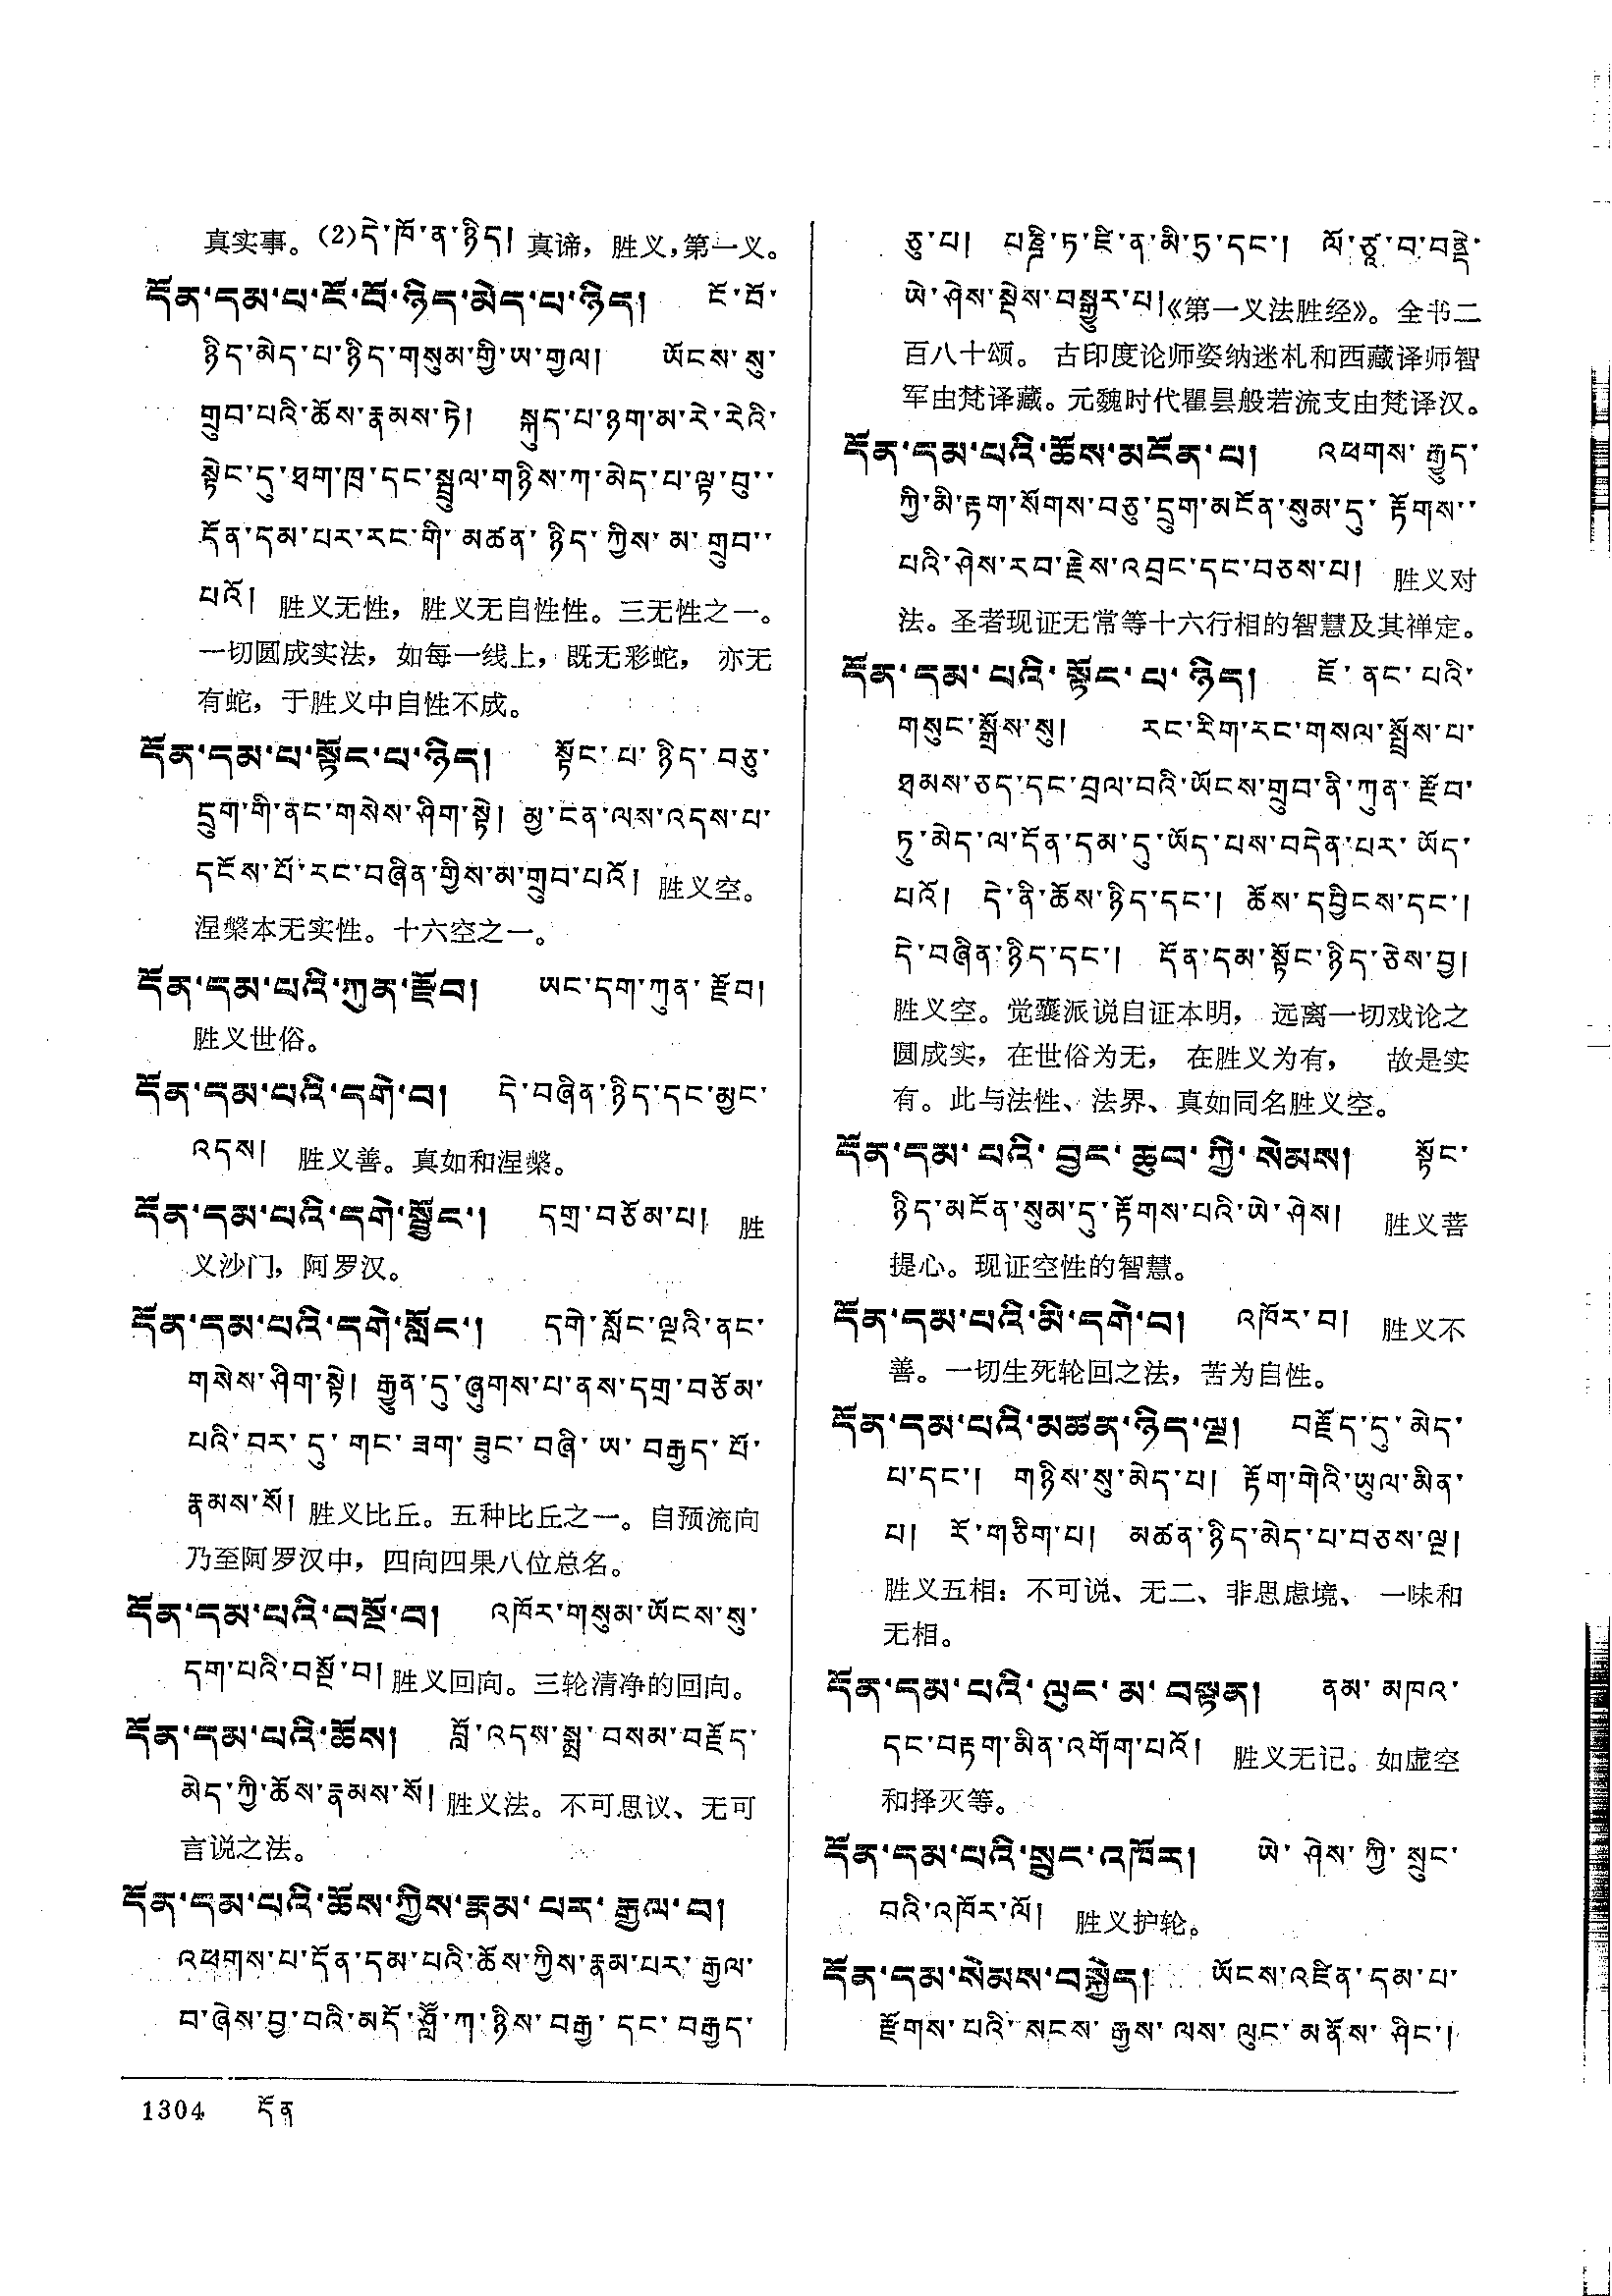 真实事。(2)དེ་ཁོ་ན་ཉིད། 真谛，胜义，第一义。
དོན་དམ་པ་ངོ་བོ་ཉིད་མེད་པ་ཉིད། ངོ་བོ་
ཉིད་མེད་པ་ཉིད་གསུམ་གྱི་ཡ་གྱལ། ཡོངས་སུ་
གྲུབ་པའི་ཆོས་རྣམས་ཏེ། སྐུད་པ་ཉག་མ་རེ་རེའི་
སྟེང་དུ་ཐག་ཁྲ་དང་སྦྲུལ་གཉིས་ཀ་མེད་པ་ལྟ་བུ་
དོན་དམ་པར་རང་གི་མཚན་ཉིད་ཀྱིས་མ་གྲུབ་
པའོ། 胜义无性，胜义无自性性。三无性之一。
一切圆成实法，如每一线上，既无彩蛇，亦无
有蛇，于胜义中自性不成。
དོན་དམ་པ་སྟོང་པ་ཉིད། སྟོང་པ་ཉིད་བཅུ་
དྲུག་གི་ནང་གསེས་ཤིག་སྟེ། མྱ་ངན་ལས་འདས་པ་
དངོས་པོ་རང་བཞིན་གྱིས་མ་གྲུབ་པའོ། 胜义空。
涅槃本无实性。十六空之一。
དོན་དམ་པའི་ཀུན་རྫོབ། ཡང་དག་ཀུན་རྫོབ།
胜义世俗。
དོན་དམ་པའི་དགེ་བ། དེ་བཞིན་ཉིད་དང་མྱང་
འདས། 胜义善。真如和涅槃。
དོན་དམ་པའི་དགེ་སྦྱོང་། དགྲ་བཅོམ་པ། 胜
义沙门，阿罗汉。
དོན་དམ་པའི་དགེ་སློང་། དགེ་སློང་ལྔའི་ནང་
གསེས་ཤིག་སྟེ། རྒྱུན་དུ་ཞུགས་པ་ནས་དགྲ་བཅོམ་
པའི་བར་དུ་གང་ཟག་ཟུང་བཞི་ཡ་བརྒྱད་པོ་
རྣམས་སོ། 胜义比丘。五种比丘之一。自预流向
乃至阿罗汉中，四向四果八位总名。
དོན་དམ་པའི་བསྔོ་བ། འཁོར་གསུམ་ཡོངས་སུ་
དག་པའི་བསྔོ་བ། 胜义回向。三轮清净的回向。
དོན་དམ་པའི་ཆོས། བློ་འདས་སྨྲ་བསམ་བརྗོད་
མེད་ཀྱི་ཆོས་རྣམས་སོ། 胜义法。不可思议、无可
言说之法。
དོན་དམ་པའི་ཆོས་ཀྱིས་རྣམ་པར་རྒྱལ་བ།
འཕགས་པ་དོན་དམ་པའི་ཆོས་ཀྱིས་རྣམ་པར་རྒྱལ་
བ་ཞེས་བྱ་བའི་མདོ་ཤློ་ཀ་ཉིས་བརྒྱ་དང་བརྒྱད་
ཅུ་པ། པཎྜི་ཏ་ཛི་ན་མི་ཏྲ་དང་། ལོ་ཙཱ་བ་བནྡེ་
ཡེ་ཤེས་སྡེས་བསྒྱུར་པ། 《第一义法胜经》。全书二
百八十颂。古印度论师姿纳迷札和西藏译师智
军由梵译藏。元魏时代瞿昙般若流支由梵译汉。
དོན་དམ་པའི་ཆོས་མངོན་པ། འཕགས་རྒྱུད་
ཀྱི་མི་རྟག་སོགས་བཅུ་དྲུག་མངོན་སུམ་དུ་རྟོགས་
པའི་ཤེས་རབ་རྗེས་འབྲང་དང་བཅས་པ། 胜义对
法。圣者现证无常等十六行相的智慧及其禅定。
དོན་དམ་པའི་སྟོང་པ་ཉིད། ཇོ་ནང་པའི་
གསུང་སྒྲོས་སུ། རང་རིག་རང་གསལ་སྤྲོས་པ་
ཐམས་ཅད་དང་བྲལ་བའི་ཡོངས་གྲུབ་ནི་ཀུན་རྫོབ་
ཏུ་མེད་ལ་དོན་དམ་དུ་ཡོད་པས་བདེན་པར་ཡོད་
པའོ། དེ་ནི་ཆོས་ཉིད་དང་། ཆོས་དབྱིངས་དང་།
དེ་བཞིན་ཉིད་དང་། དོན་དམ་སྟོང་ཉིད་ཅེས་བྱ།
胜义空。觉囊派说自证本明，远离一切戏论之
圆成实，在世俗为无，在胜义为有，故是实
有。此与法性、法界、真如同名胜义空。
དོན་དམ་པའི་བྱང་ཆུབ་ཀྱི་སེམས། སྟོང་
ཉིད་མངོན་སུམ་དུ་རྟོགས་པའི་ཡེ་ཤེས། 胜义菩
提心。现证空性的智慧。
དོན་དམ་པའི་མི་དགེ་བ། འཁོར་བ། 胜义不
善。一切生死轮回之法，苦为自性。
དོན་དམ་པའི་མཚན་ཉིད་ལྔ། བརྗོད་དུ་མེད་
པ་དང་། གཉིས་སུ་མེད་པ། རྟོག་གེའི་ཡུལ་མིན་
པ། རོ་གཅིག་པ། མཚན་ཉིད་མེད་པ་བཅས་ལྔ།
胜义五相：不可说、无二、非思虑境、一味和
无相。
དོན་དམ་པའི་ལུང་མ་བསྟན། ནམ་མཁའ་
དང་བརྟག་མིན་འགོག་པའོ། 胜义无记。如虚空
和择灭等。
དོན་དམ་པའི་སྲུང་འཁོར། ཡེ་ཤེས་ཀྱི་སྲུང་
བའི་འཁོར་ལོ། 胜义护轮。
དོན་དམ་སེམས་བསྐྱེད། ཡོངས་འཛིན་དམ་པ་
རྫོགས་པའི་སངས་རྒྱས་ལས་ལུང་མནོས་ཤིང་།
1304 དོན